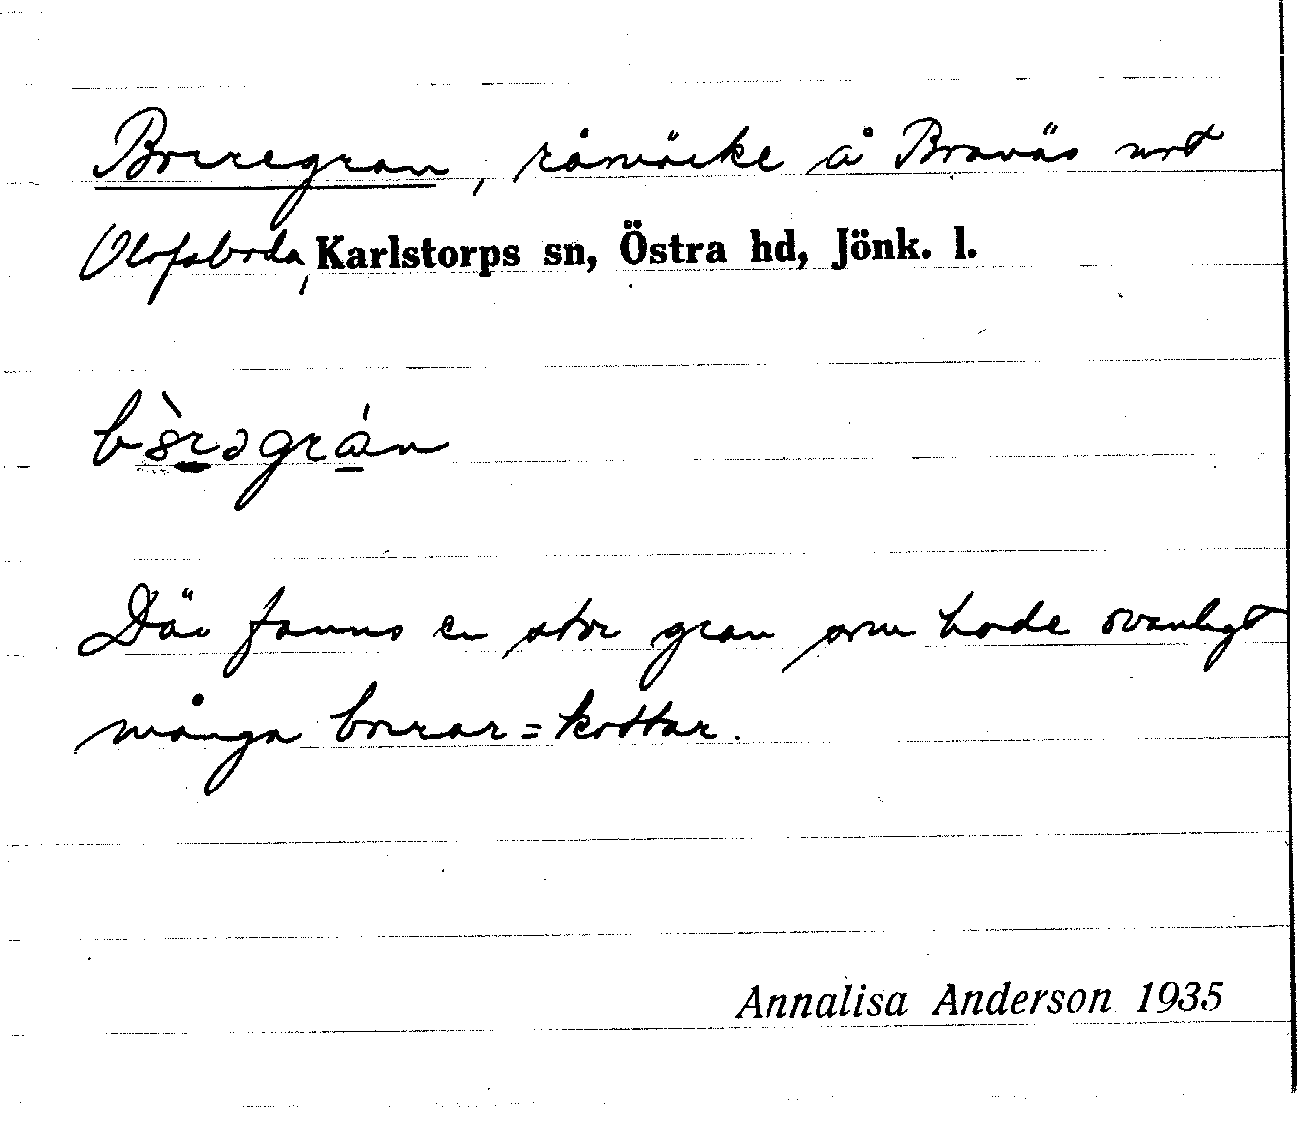 Borregran, råmärke å Braväs mot
Olofsboda, Karlstorps sn, Östra hd, Jönk. l.
Där fanns en stor gran som hade ovanligt
många borrar = kottar.
Annalisa Anderson 1935